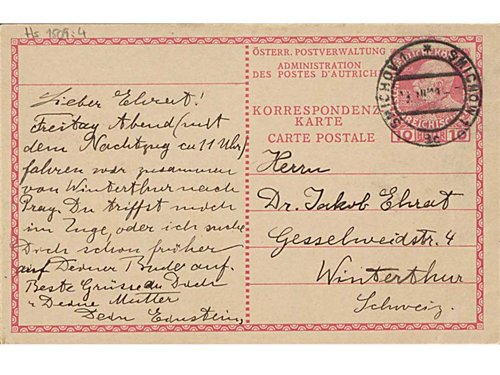 Hs 1509:4
ÖSTERR. POSTVERWALTUNG
ADMINISTRATION
DES POSTES D'AUTRICHE
KORRESPONDENZ
KARTE
CARTE POSTALE
SMICHOV 1
SMICHOW 1
10 10
Lieber Ehrat!
Freitag Abend (mit
dem Nachtzug ca 11 Uhr)
fahren wir zusammen
von Winterthur nach
Prag. Du triffst mich
im Zuge, oder ich suche
Dich schon früher
auf Deiner Bude auf.
Beste Grüsse an Dich
u Deine Mutter
Dein Einstein.
Herrn
Dr. Jakob Ehrat
Gesselweidstr. 4
Winterthur
Schweiz.